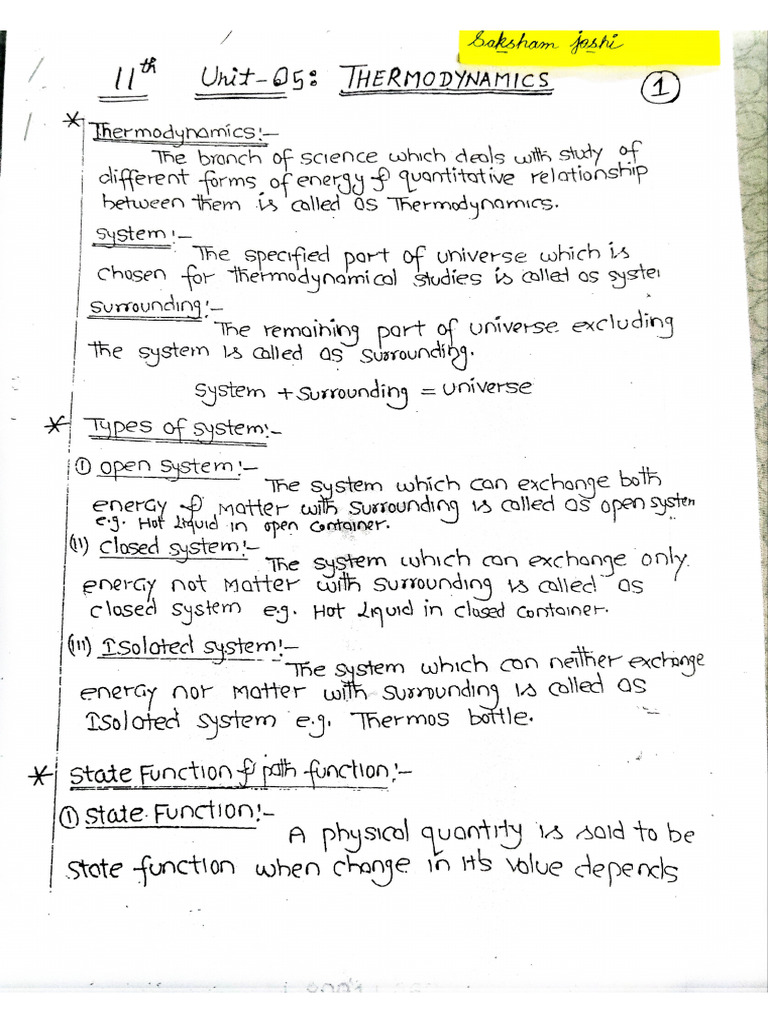 Saksham joshi
11th Unit-05: THERMODYNAMICS 1
* Thermodynamics:-
The branch of science which deals with study of
different forms of energy & quantitative relationship
between them is called as Thermodynamics.
System:-
The specified part of universe which is
chosen for thermodynamical studies is called as syster
Surrounding:-
The remaining part of universe excluding
the system is called as surrounding.
System + Surrounding = universe
* Types of system:-
(i) open system:-
The system which can exchange both
energy & matter with surrounding is called as open system
e.g. Hot liquid in open container.
(ii) closed system:-
The system which can exchange only
energy not matter with surrounding is called as
closed system e.g. Hot liquid in closed container.
(iii) Isolated system:-
The system which can neither exchange
energy nor matter with surrounding is called as
Isolated system e.g. Thermos bottle.
* State Function & path function:-
(i) State Function:-
A physical quantity is said to be
state function when change in it's value depends